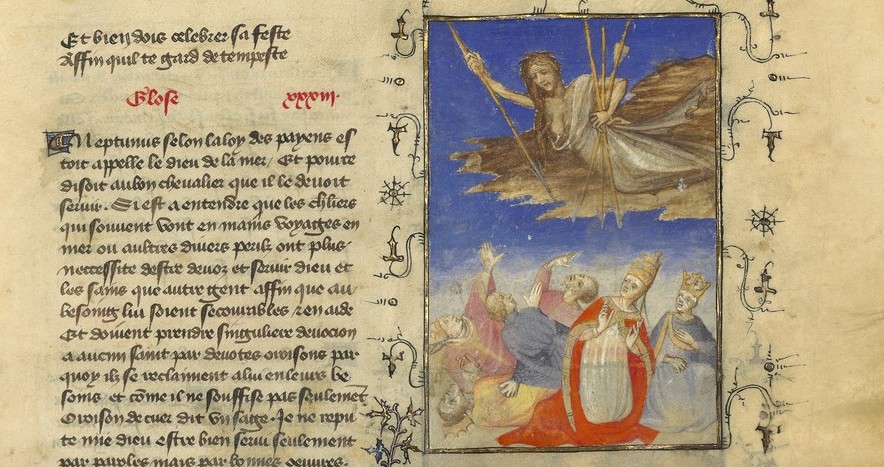 Et bien dois celebrer sa feste
Affin quil te gard de tempeste
Glose xxxiii.
Neptunus selon la loy des payens es
toit appelle le dieu de la mer / Et pource
disoit au bon chevalier que il le devoit
servir. Si est a entendre que les chliers
qui souvent vont en mains voyages en
mer ou aultres divers perilz ont plus
neccessite destre devoz et servir dieu et
les sains que autre gent affin que au
besoing lui soient secourables / en aide
Et doivent prendre singuliere devocion
a aucun saint par devotes oroisons par
quoy ilz se reclaiment a lui en leurs be
soins et come il ne souffise pas seulement
Oroison de cuer dit vn saige Je ne repu
te mie dieu estre bien servi seulement
par paroles mais par bonnes oeuvres.